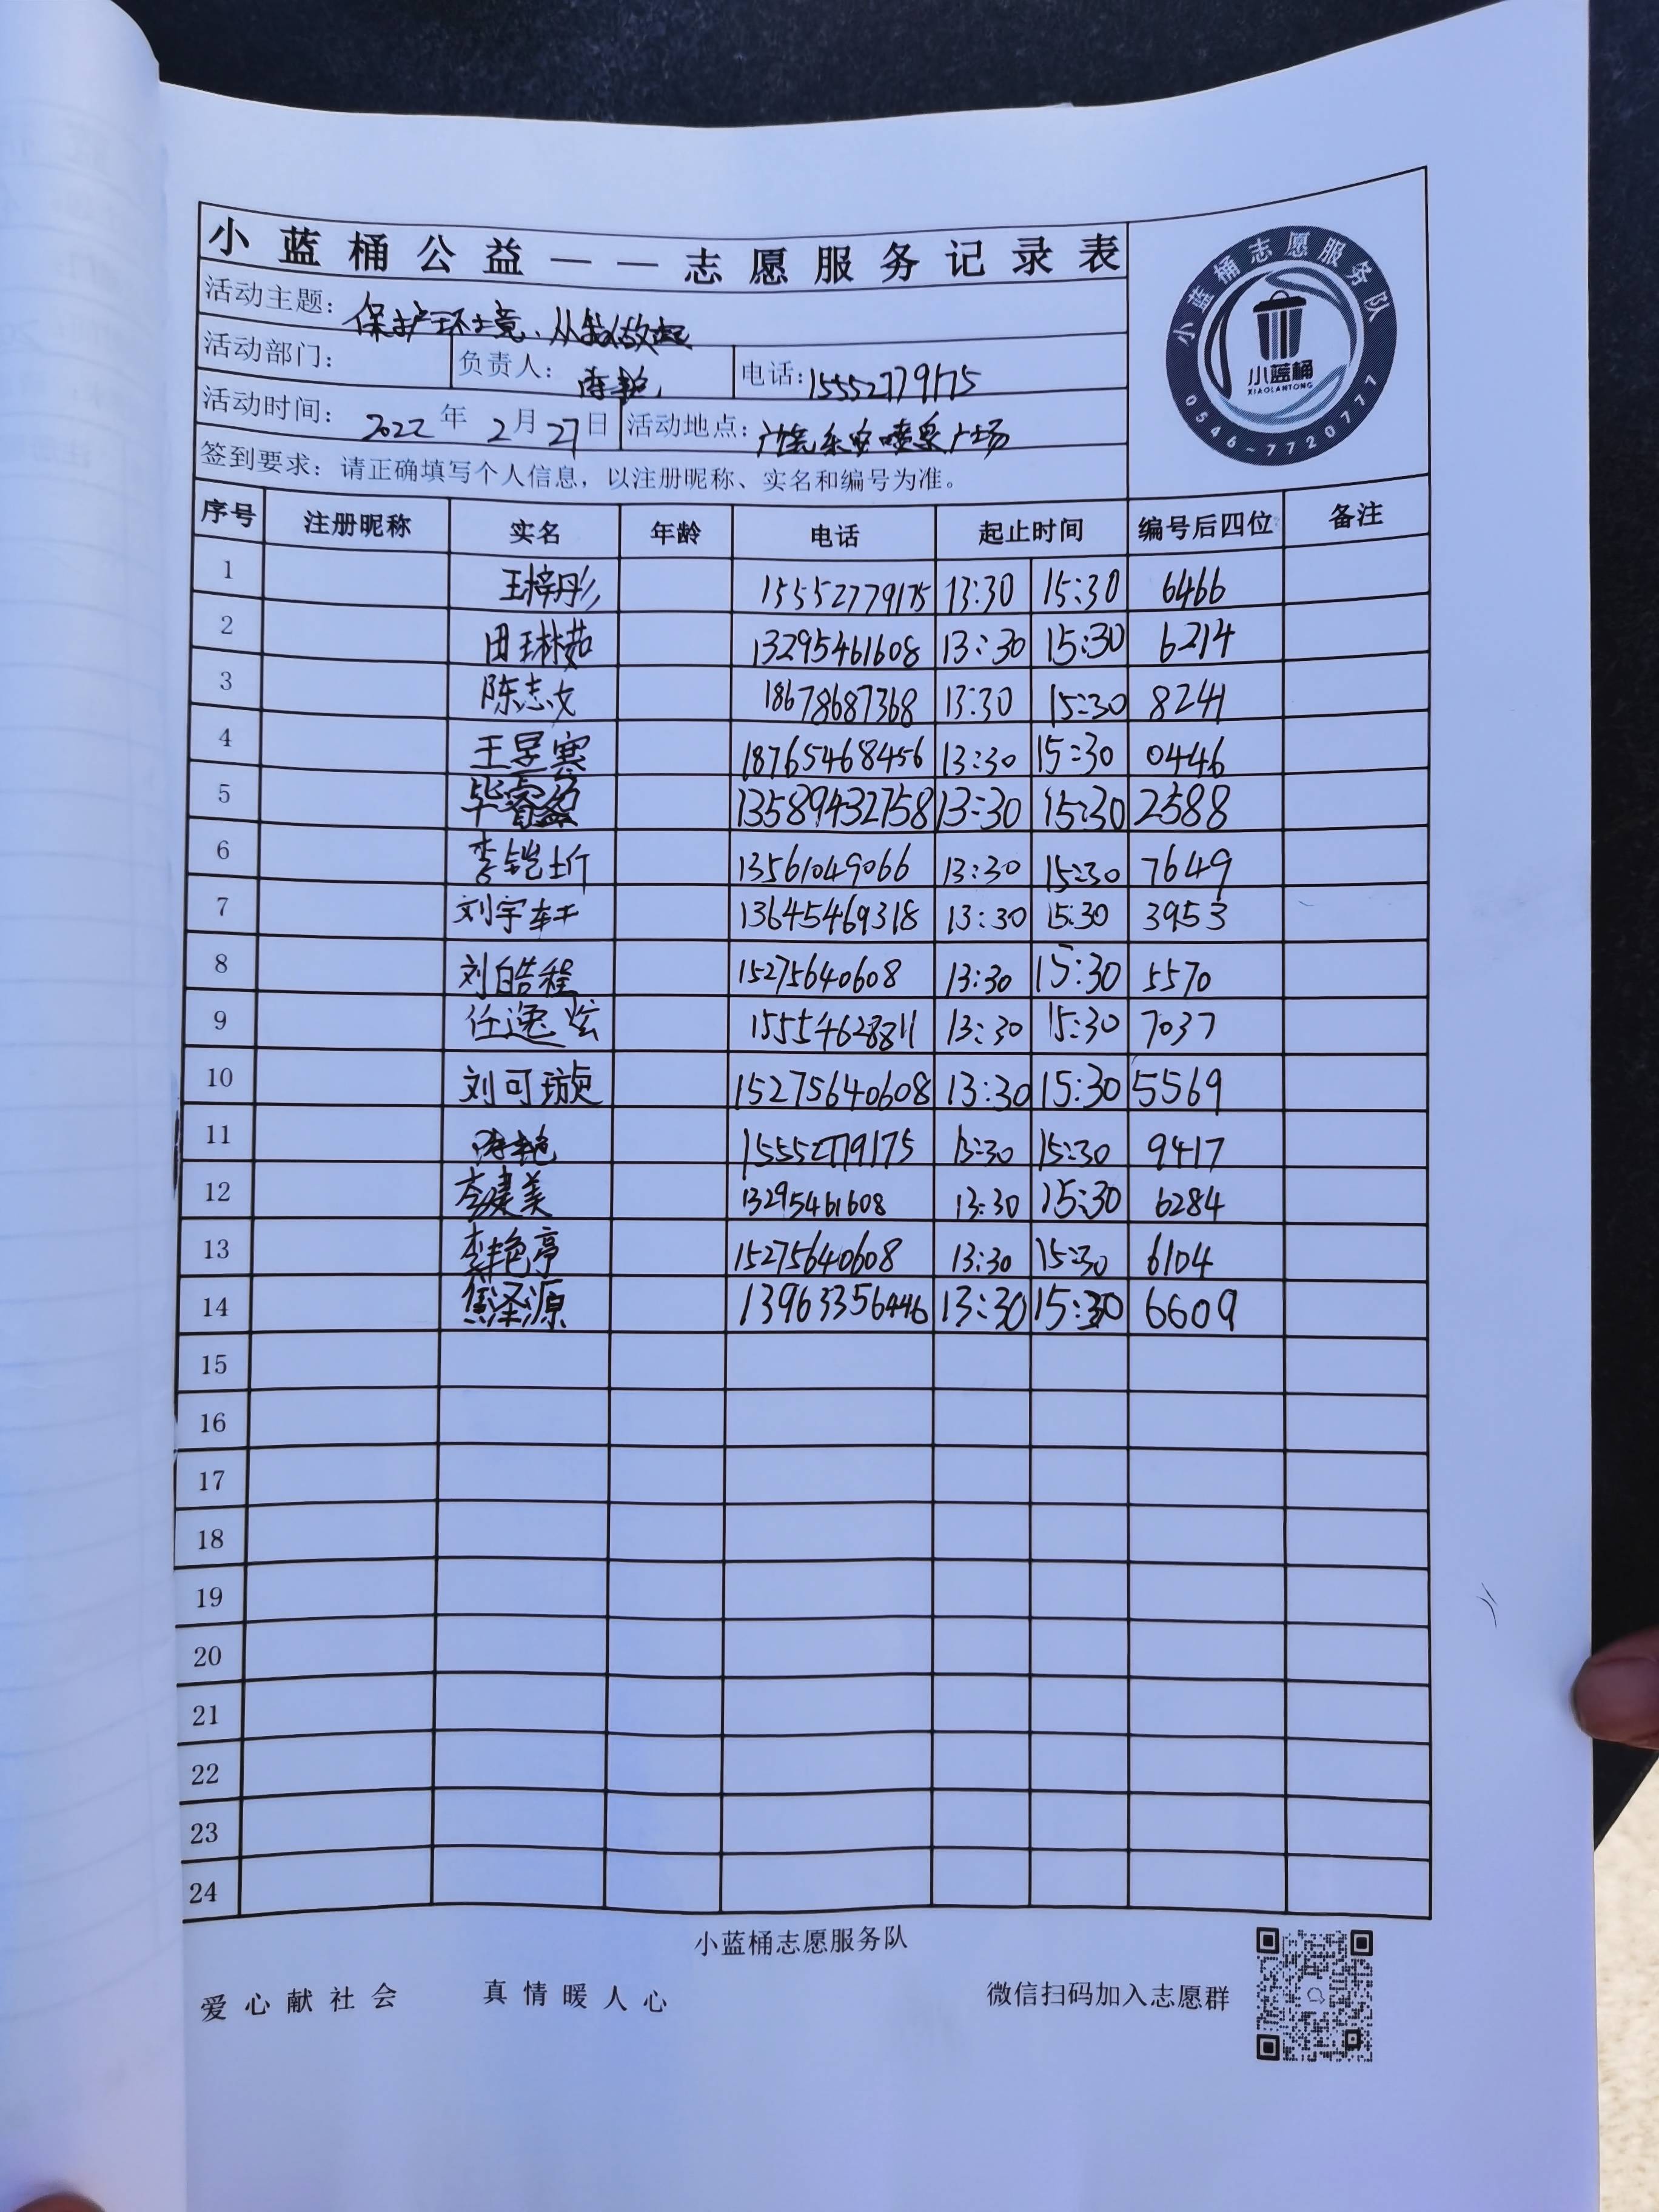 小蓝桶公益——志愿服务记录表
小蓝桶志愿服务队
小蓝桶
XIAOLANTONG
0546-7720777
活动主题：保护环境、从我做起
活动部门： 负责人： 电话：15552779175
活动时间：2022年2月27日 活动地点：喷泉广场
签到要求：请正确填写个人信息，以注册昵称、实名和编号为准。
序号 注册昵称 实名 年龄 电话 起止时间 编号后四位 备注
1 王梓彤 15552779175 13:30 15:30 6466
2 田琳茹 13295461608 13:30 15:30 6214
3 陈志文 18678687368 13:30 15:30 8241
4 王昱寒 18765468456 13:30 15:30 0446
5 毕睿盈 13589432758 13:30 15:30 2588
6 李铠圻 13561049066 13:30 15:30 7649
7 刘宇轩 13645469318 13:30 15:30 3953
8 刘皓程 15275640608 13:30 15:30 5570
9 任逸炫 15554628811 13:30 15:30 7037
10 刘可璇 15275640608 13:30 15:30 5569
11 15552779175 13:30 15:30 9417
12 李建美 13295461608 13:30 15:30 6284
13 李艳亭 15275640608 13:30 15:30 6104
14 焦泽源 13963356446 13:30 15:30 6609
15
16
17
18
19
20
21
22
23
24
小蓝桶志愿服务队
爱心献社会 真情暖人心 微信扫码加入志愿群